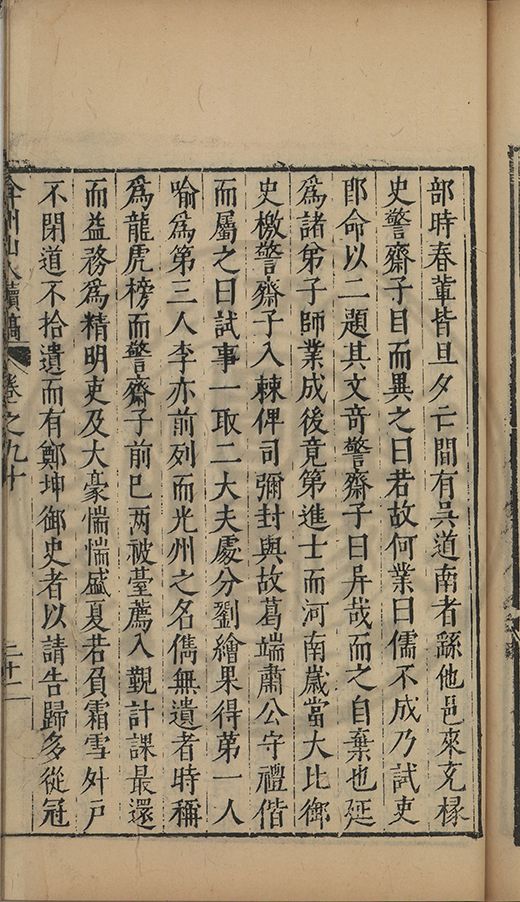 部時春軰皆旦夕亡間有吳道南者繇他邑來充椽
史警齋子目而異之曰若故何業曰儒不成乃試吏
郎命以二題其文竒警齋子曰异哉而之自棄也延
爲諸弟子師業成後竟第進士而河南歲當大比御
史檄警齋子入棘俾司彌封與故葛端肅公守禮偕
而屬之曰試事一取二大夫處分劉繪果得第一人
喻爲第三人李亦前列而光州之名儁無遺者時稱
爲龍虎榜而警齋子前巳两被臺薦入覲計課最還
而益務爲精明吏及大豪惴惴盛夏若負霜雪外戸
不閉道不拾遺而有鄭坤御史者以請告歸多從冠
弇州山人續稿
卷之九十
二十二